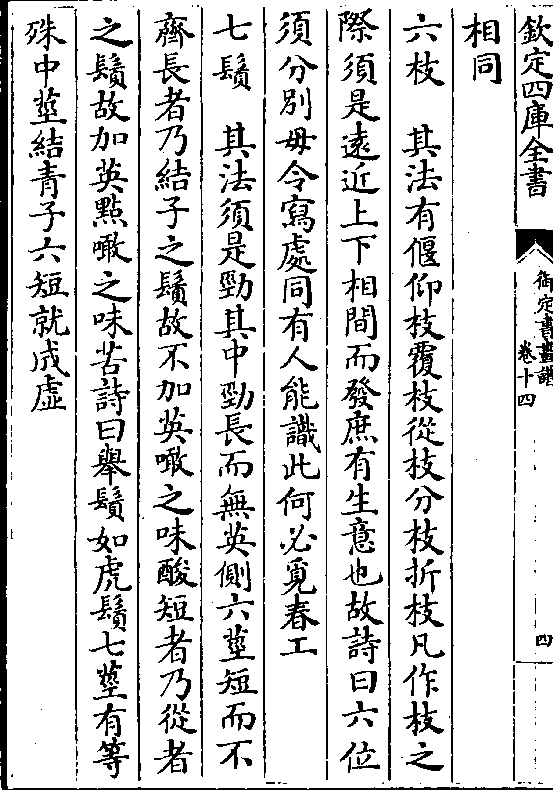 欽定四庫全書
御定書畫譜
卷十四
四
相同
六枝　其法有偃仰枝覆枝從枝分枝折枝凡作枝之
際須是遠近上下相間而發庶有生意也故詩曰六位
須分別毋令寫處同有人能識此何必覓春工
七鬚　其法須是勁其中勁長而無英側六莖短而不
齊長者乃結子之鬚故不加英噉之味酸短者乃從者
之鬚故加英點噉之味苦詩曰舉鬚如虎鬚七莖有等
殊中莖結青子六短就成虛